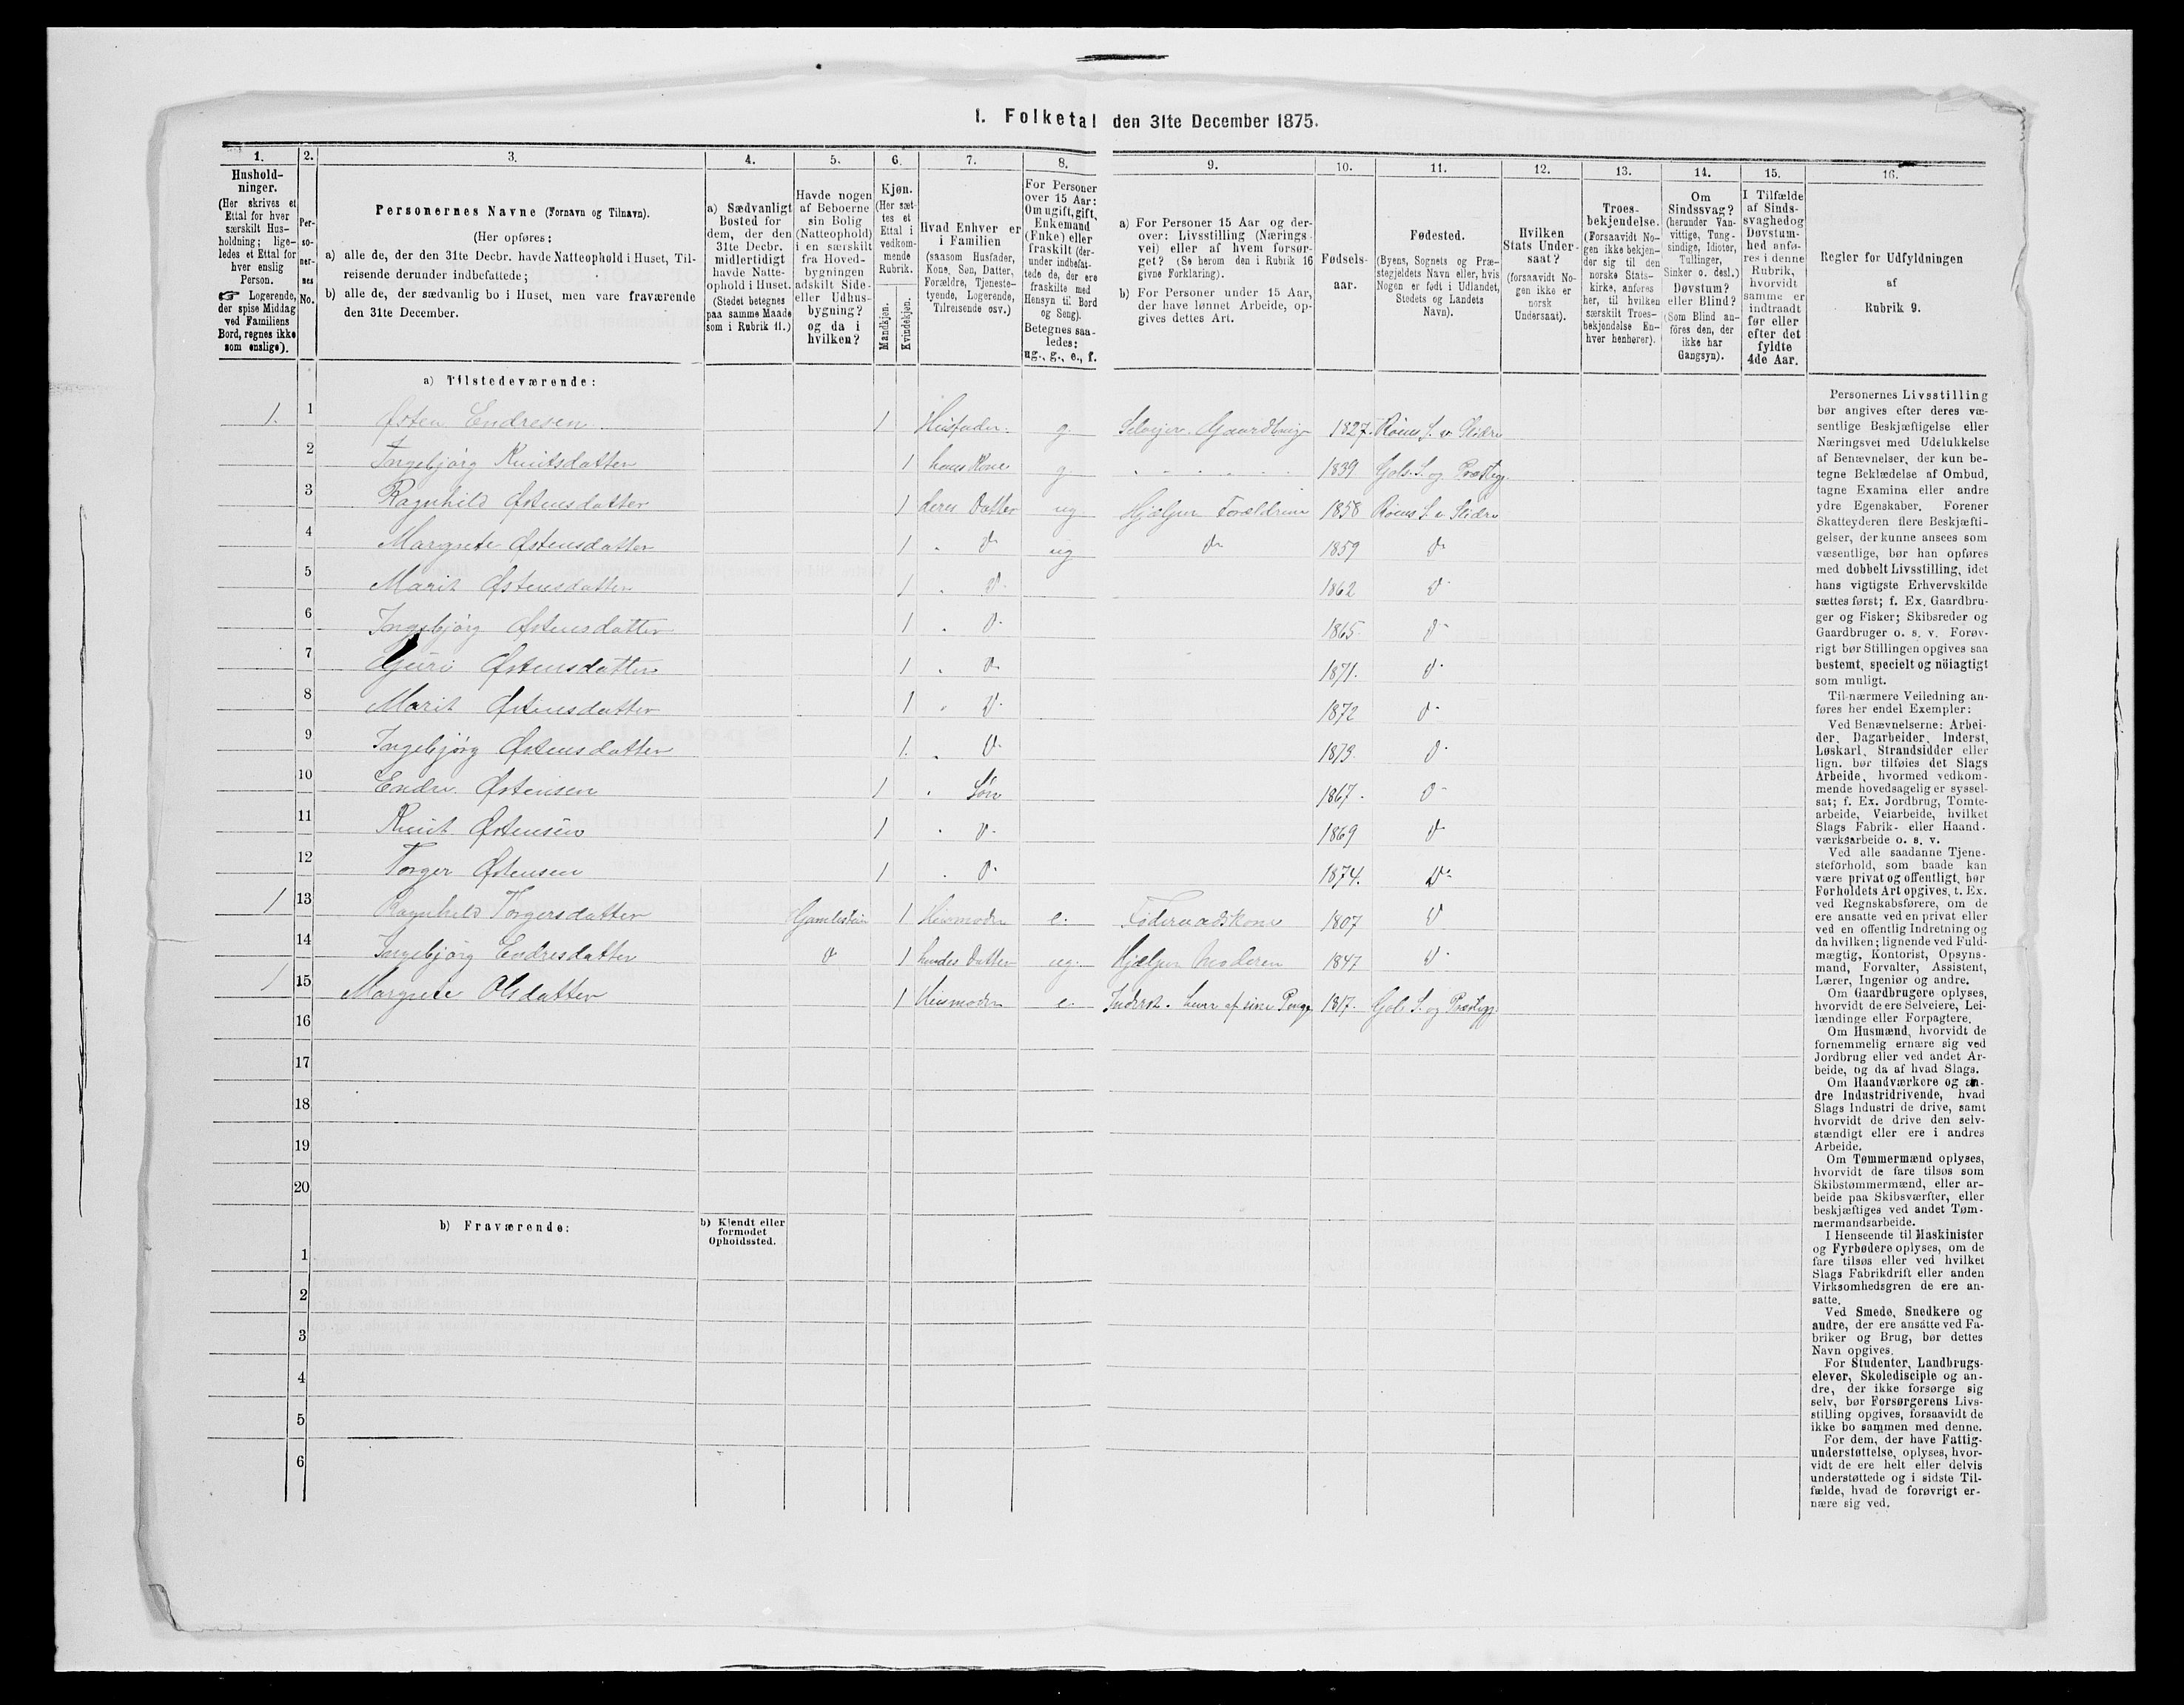 I. Folketal den 31te December 1875.
1. 2. 3. 4. 5. 6. 7. 8. 9. 10. 11. 12. 13. 14. 15. 16.
Hushold-
ninger.
(Her skrives et
Ettal for hver
særskilt Hus-
holdning; lige-
ledes et Ettal for
hver enslig
Person.
☞ Logerende,
der spise Middag
ved Familiens
Bord, regnes ikke
som enslige).
Per-
so-
ner-
nes
No.
Personernes Navne (Fornavn og Tilnavn).
(Her opføres:
a) alle de, der den 31te Decbr. havde Natteophold i Huset, Til-
reisende derunder indbefattede;
b) alle de, der sædvanlig bo i Huset, men vare fraværende
den 31te December.
a) Sædvanligt
Bosted for
dem, der den
31te Decbr.
midlertidigt
havde Natte-
ophold i Huset.
(Stedet betegnes
paa samme Maade
som i Rubrik 11.)
Havde nogen
af Beboerne
sin Bolig
(Natteophold)
i en særskilt
fra Hoved-
bygningen
adskilt Side-
eller Udhus-
bygning?
og da i
hvilken?
Kjøn.
(Her sæt-
tes et
Ettal i
vedkom-
mende
Rubrik.
Mandkjøn.
Kvindekjøn.
Hvad Enhver er
i Familien
(saasom Husfader,
Kone, Søn, Datter,
Forældre, Tjeneste-
tyende, Logerende,
Tilreisende osv.)
For Personer
over 15 Aar:
Om ugift, gift,
Enkemand
(Enke) eller
fraskilt (der-
under indbefat-
tede de, der ere
fraskilte med
Hensyn til Bord
og Seng).
Betegnes saa-
ledes:
ug., g., e., f.
a) For Personer 15 Aar og der-
over: Livsstilling (Nærings-
vei) eller af hvem forsør-
get? (Se herom den i Rubrik 16
givne Forklaring).
b) For Personer under 15 Aar,
der have lønnet Arbeide, op-
gives dettes Art.
Fødsels-
aar.
Fødested.
(Byens, Sognets og Præ-
stegjeldets Navn eller, hvis
Nogen er født i Udlandet,
Stedets og Landets
Navn).
Hvilken
Stats Under-
saat?
(forsaavidt No-
gen ikke er
norsk
Undersaat).
Troes-
bekjendelse.
(Forsaavidt No-
gen ikke bekjen-
der sig til den
norske Stats-
kirke, anføres
her, til hvilken
særskilt Troes-
bekjendelse En-
hver henhører).
Om
Sindssvag?
(herunder Van-
vittige, Tung-
sindige, Idioter,
Tullinger,
Sinker o. desl.)
Døvstum?
eller Blind?
(Som Blind an-
føres den, der
ikke har
Gangsyn).
I Tilfælde
af Sinds-
svaghed og
Døvstum-
hed anfø-
res i denne
Rubrik,
hvorvidt
samme er
indtraadt
før eller
efter det
fyldte
4de Aar.
Regler for Udfyldningen
af
Rubrik 9.
a) Tilstedeværende:
1. 1 Østen Endresen 1 Husfader. g. Selveier Gaardbruger 1827. Røens S. v. Slidre
2 Ingebjørg Knutsdatter 1 hans Kone g. 1839 Gols S. og Præstegj.
3 Ragnhild Østensdatter 1 deres Datter ug Hjælper Forældrene 1858 Røens S. v. Slidre
4 Margrete Østensdatter 1 " do ug do 1859 do
5 Marit Østensdatter 1 " do 1862 do
6 Ingebjørg Østensdatter 1 " do 1865 do
7 Guri Østensdatter 1 " do 1871. do
8 Marit Østensdatter 1 " do 1872 do
9 Ingebjørg Østensdatter 1. " do 1873 do
10 Endre Østensen 1 " Søn 1867 do
11 Knut Østensen 1 " do 1869 do
12 Torger Østensen 1 " do 1874. do
1 13 Ragnhild Torgersdatter 1 Husmoder e. Føderaadskone 1807 do
14 Ingebjørg Endresdatter do 1 hendes Datter ug. Hjælper Moderen 1847 do
1 15 Margrete Olsdatter 1 Husmoder e. Inderst. lever af sine Penge 1817. Gols S. og Præstegj.
16
17
18
19
20
b) Fraværende:
b) Kjendt eller
formodet
Opholdssted.
1
2
3
4
5
6
Personernes Livsstilling
bør angives efter deres væ-
sentlige Beskjæftigelse eller
Næringsvei med Udelukkelse
af Benævnelser, der kun be-
tegne Beklædelse af Ombud,
tagne Examina eller andre
ydre Egenskaber. Forener
Skatteyderen flere Beskjæfti-
gelser, der kunne ansees som
væsentlige, bør han opføres
med dobbelt Livsstilling, idet
hans vigtigste Erhvervskilde
sættes først; f. Ex. Gaardbru-
ger og Fisker; Skibsreder og
Gaardbruger o. s. v. Forøv-
rigt bør Stillingen opgives saa
bestemt, specielt og nöiagtigt
som muligt.
Til nærmere Veiledning an-
føres her endel Exempler:
Ved Benævnelserne: Arbei-
der, Dagarbeider, Inderst,
Løskarl, Strandsidder eller
lign. bør tilføies det Slags
Arbeide, hvormed vedkom-
mende hovedsagelig er syssel-
sat; f. Ex. Jordbrug, Tomte-
arbeide, Veiarbeide, hvilket
Slags Fabrik- eller Haand-
værksarbeide o. s. v.
Ved alle saadanne Tjene-
steforhold, som baade kan
være privat og offentligt, bør
Forholdets Art opgives, t. Ex.
ved Regnskabsførere, om de
ere ansatte ved en privat eller
ved en offentlig Indretning og
da hvilken; lignende ved Fuld-
mægtig, Kontorist, Opsyns-
mand, Forvalter, Assistent,
Lærer, Ingeniør og andre.
Om Gaardbrugere oplyses,
hvorvidt de ere Selveiere, Lei-
lændinge eller Forpagtere.
Om Husmænd, hvorvidt de
fornemmelig ernære sig ved
Jordbrug eller ved andet Ar-
beide, og da af hvad Slags.
Om Haandværkere og an-
dre Industridrivende, hvad
Slags Industri de drive, samt
hvorvidt de drive den selv-
stændigt eller ere i andres
Arbeide.
Om Tømmermænd oplyses,
hvorvidt de fare tilsøs som
Skibstømmermænd, eller ar-
beide paa Skibsværfter, eller
beskjæftiges ved andet Tøm-
mermandsarbeide.
I Henseende til Maskinister
og Fyrbødere oplyses, om de
fare tilsøs eller ved hvilket
Slags Fabrikdrift eller anden
Virksomhedsgren de ere an-
satte.
Ved Smede, Snedkere og
andre, der ere ansatte ved Fa-
briker og Brug, bør dettes
Navn opgives.
For Studenter, Landbrugs-
elever, Skoledisciple og an-
dre, der ikke forsørge sig
selv, bør Forsørgerens Livs-
stilling opgives, forsaavidt de
ikke bo sammen med denne.
For dem, der have Fattig-
understøttelse, oplyses, hvor-
vidt de ere helt eller delvis
understøttede og i sidste Til-
fælde, hvad de forøvrigt er-
nære sig ved.